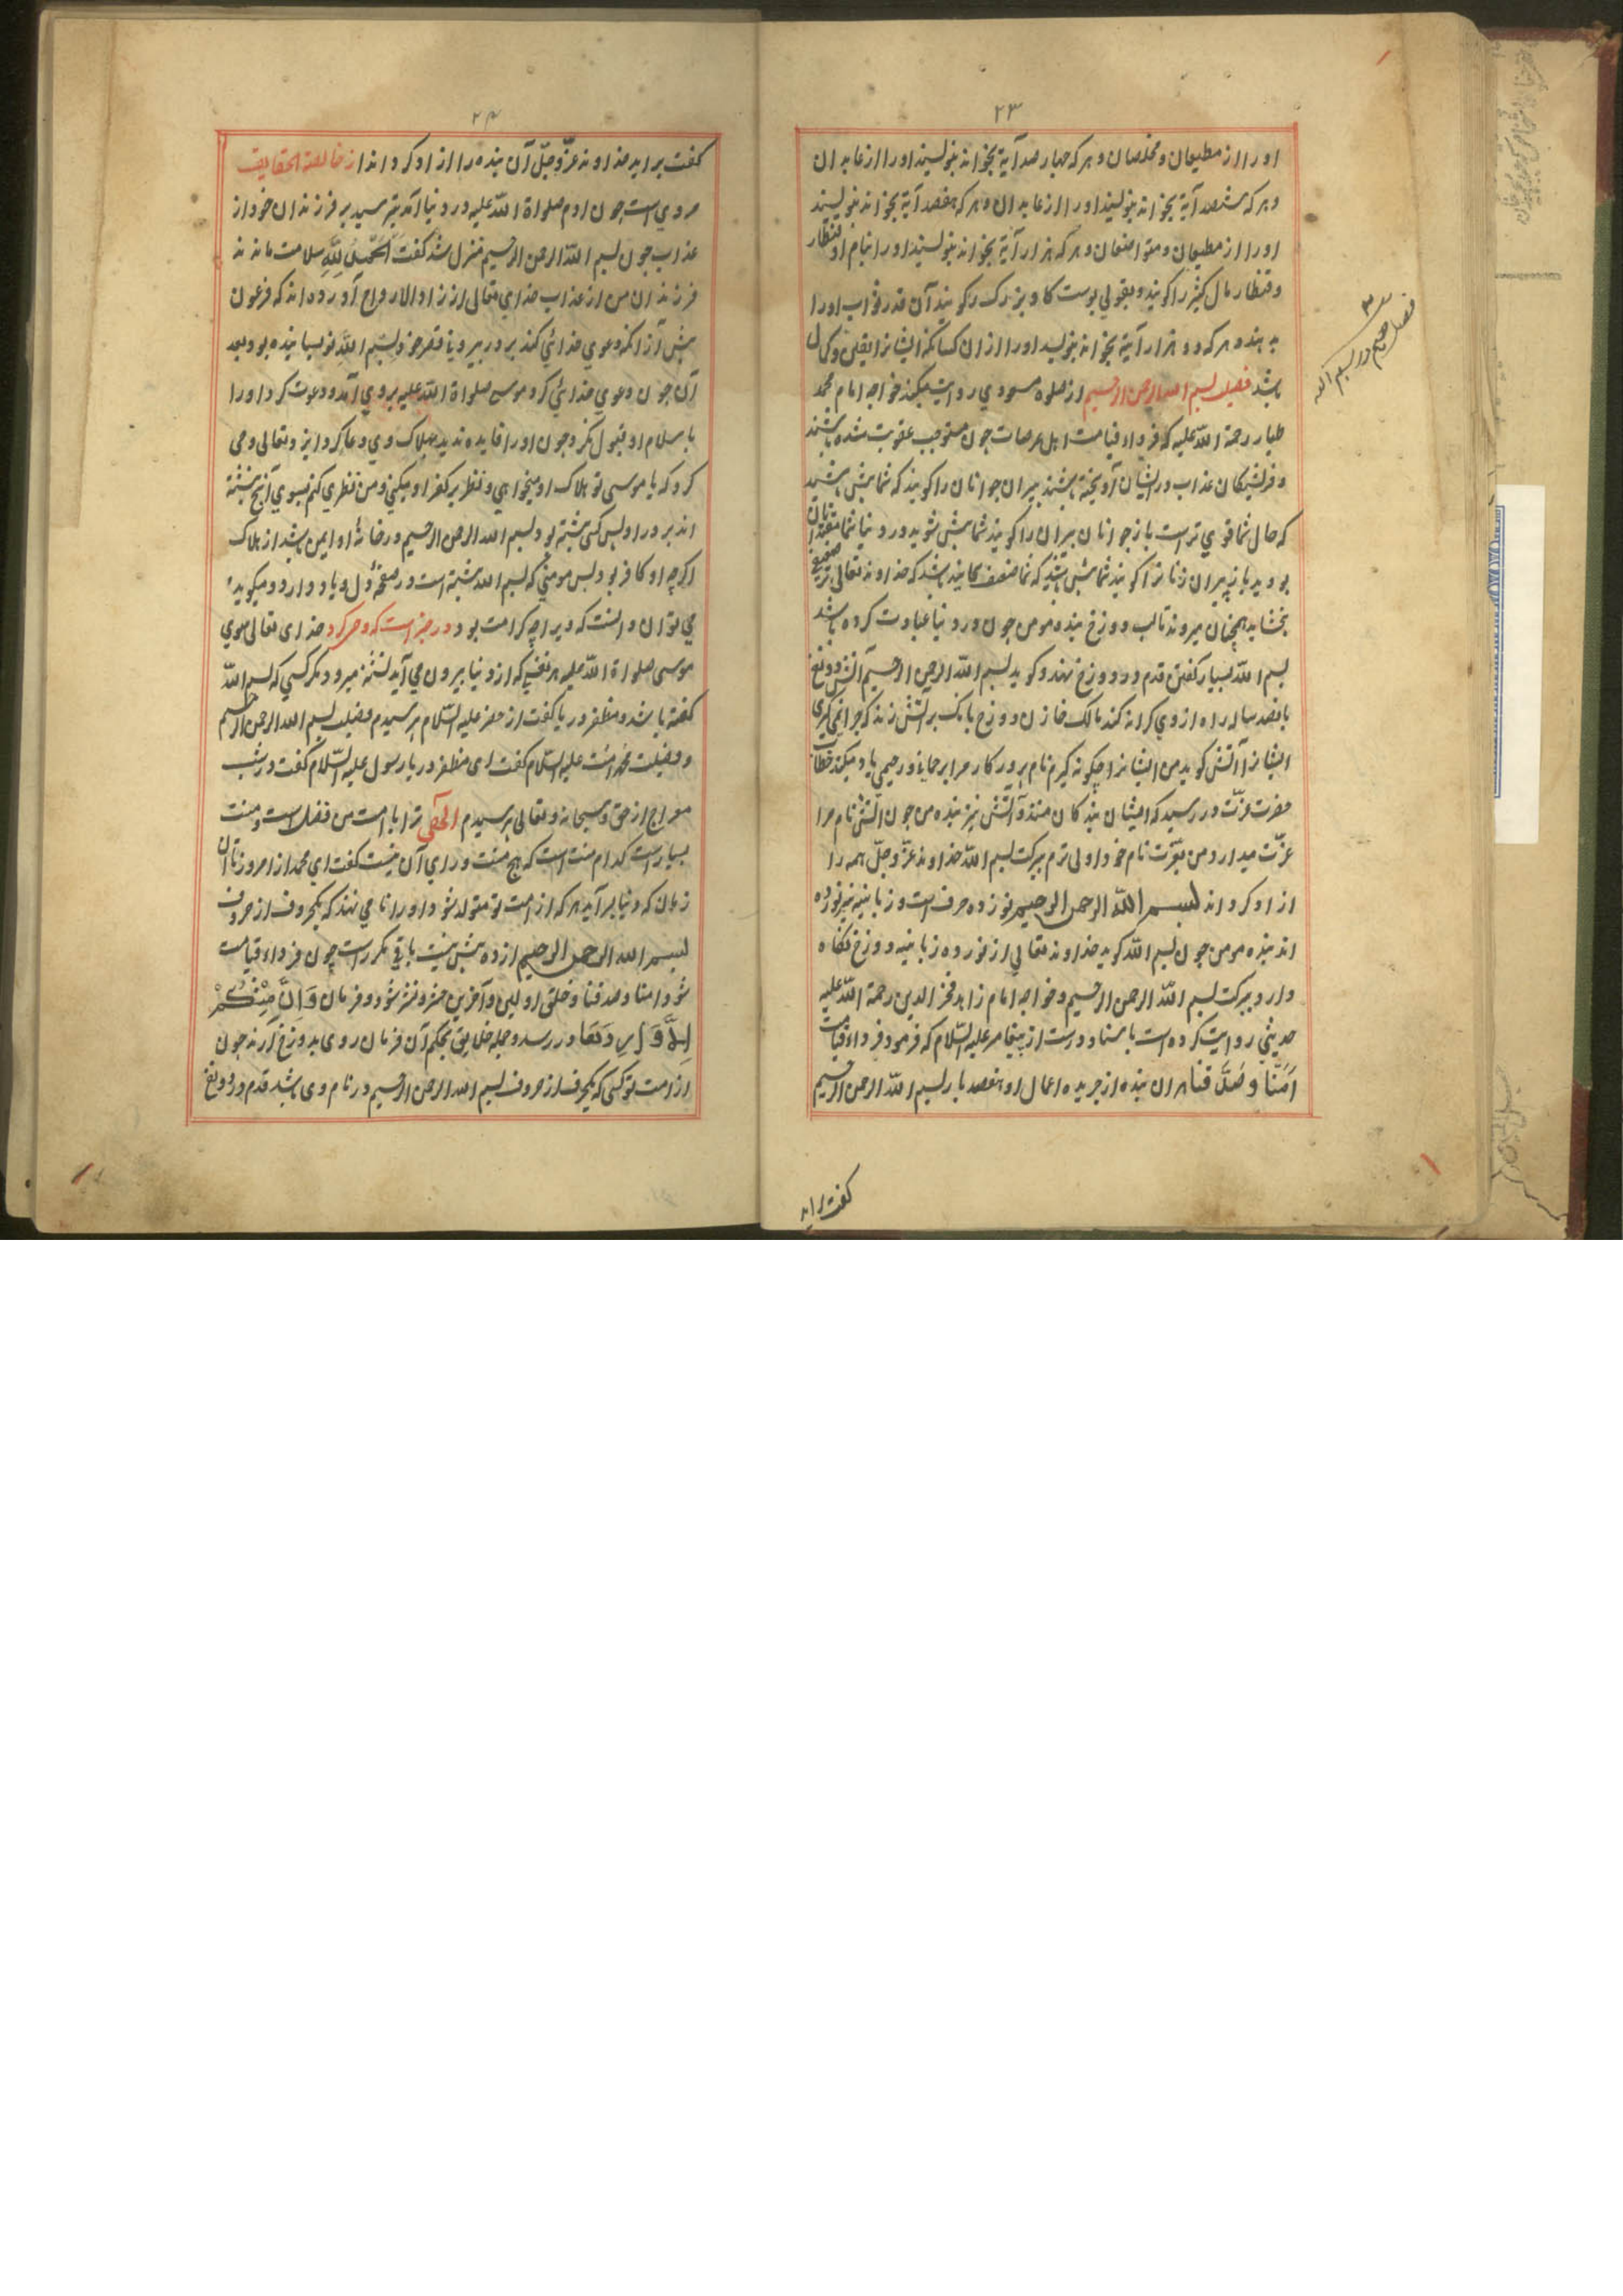 ۲۳
اورا از مطیعان و مخلصان و هر که چهار صد آیة بخواند بنویسند اورا از عابدان
و هر که ششصد آیة بخواند بنویسند اورا از عابدان و هر که هفصد آیة بخواند بنویسند
اورا از مطیعان و متواضعان و هر که هزار آیة بخواند بنویسند اورا بنام او قنطار
و قنطار مال کثیر را گویند و بقولی پوست گاو بزرگ گویند آن قدر ثواب اورا
بدهند و هر که دو هزار آیة بخواند بنویسد اورا از ان کسانکه ایشانرا یقین و کمال
باشد فضیلت بسم الله الرحمن الرحیم از صلوة مسعودی روایت میکند خواجه امام محمد
طیار رحمة الله علیه که فرداء قیامت اهل عرصات چون مستوجب عقوبت شده باشند
و فرشتگان عذاب در ایشان آویخته باشند پیران جوانان را گویند که شما پیش باشید
که حال شما قوی تر است باز جوانان پیران را گویند شما پیش شوید در دنیا شما مقتدا
بودید باز پیران زنانرا گویند شما پیش باشید که شما ضعیف باشد که خداوند تعالی
بخشاید همچنان میروند تا لب دوزخ بنده مومن چون در دنیا عبادت کرده باشد
بسم الله بسیار گفته قدم در دوزخ نهند و گوید بسم الله الرحمن الرحیم آتش دوزخ
پانصد ساله راه از وی کرانه کند مالک خازن دوزخ بانک بر آتش زند که چرا نمیگیری
ایشانرا آتش گوید من ایشانرا چگونه گیرم نام پروردگار مرا برحمانی و رحیمی یاد میکند خطاب
حضرت عزّت در رسید که ایشان بندگان منند و آتش نیز بنده من چون آتش نام مرا
عزّت میدارد من بعزّت نام خود اولی ترم ببرکت بسم الله خداوند عزّ و جلّ همه را
ازاد کرداند بسم الله الرحمن الرحیم نوزده حرف است و زبانیه نیز نوزده
اند بنده مومن چون بسم الله گوید خداوند تعالی از نوزده زبانیه دوزخ نگاه
دارد ببرکت بسم الله الرحمن الرحیم و خواجه امام زاهد فخر الدین رحمة الله علیه
حدیثی روایت کرده است باسناد درست از پیغامبر علیه السّلام که فرمود فرداء قیامت
اٰمَنَّا وَصَدَّقنا هر ان بنده از جریده اعمال او هفصد بار بسم الله الرحمن الرحیم
گفت براید
فصل در بسم الله
۲۴
گفت براید خداوند عزّ و جلّ آن بنده را ازاد کرداند از خالصة الحقایق
مرویست چون ادم صلواة الله علیه در دنیا آمد بترسید بر فرزندان خود از
عذاب چون بسم الله الرحمن الرحیم منزل شد گفت اَلحَمدُ لِلّٰهِ سلامت ماندند
فرزندان من از عذاب خدای تعالی از زاد الارواح آورده اند که فرعون
پیش از انکه دعوی خدائی کند بر در بیرونی قصر خود بسم الله نویسانیده بود بعد
آن چون دعوی خدائی کرد موسی صلواة الله علیه بروی آمد و دعوت کرد اورا
باسلام او قبول نکرد چون اورا فایده ندید بهلاک وی دعا کرد ایزد تعالی وحی
کرد که یا موسی تو هلاک او میخواهی و نظر بر کفر او میکنی و من نظری کنم بسوی آنچ نبشته
اند بر در او پس کسی نبشته بود بسم الله الرحمن الرحیم در خانهٔ او ایمن باشد از هلاک
اگرچه او کافر بود پس مومنی که بسم الله نبشته است در صفحهٔ دل و یاد دارد و میگوید
می توان دانست که ویرا چه کرامت بود در خبر است که وحی کرد خدای تعالی سوی
موسی صلواة الله علیه هر نفسی که از دنیا بیرون می آید تشنه میرود مگر کسی که بسم الله
گفته باشد و مظفر در یا گفت از خضر علیه السّلام پرسیدم فضیلت بسم الله الرحمن الرحیم
و فضیلت محمد است علیه السّلام گفت ای مظفر در یا رسول علیه السّلام گفت در شب
معراج از حق سبحانه و تعالی پرسیدم الٰهی ترا با امت من فضل است و منت
بسیارست کدام منت است که هیچ منت ورای آن نیست گفت ای محمد از امروز تا آن
زمان که دنیا برآید هر که از امت تو متولد شود اورا نامی نهند که یکحرف از حروف
بسم الله الرحمن الرحیم از ده بیش نیست باقی مکررست چون فرداء قیامت
شود امنا و صدقنا و خلق اولین و آخرین حشر و نشر شود و فرمان وَاِنَّ مِنْکُمْ
اِلَّا وَارِدُهَا در رسد و جمله خلایق بحکم آن فرمان روی بدوزخ آرند چون
از امت تو کسی که یکحرف از حروف بسم الله الرحمن الرحیم در نام وی باشد قدم در دوزخ